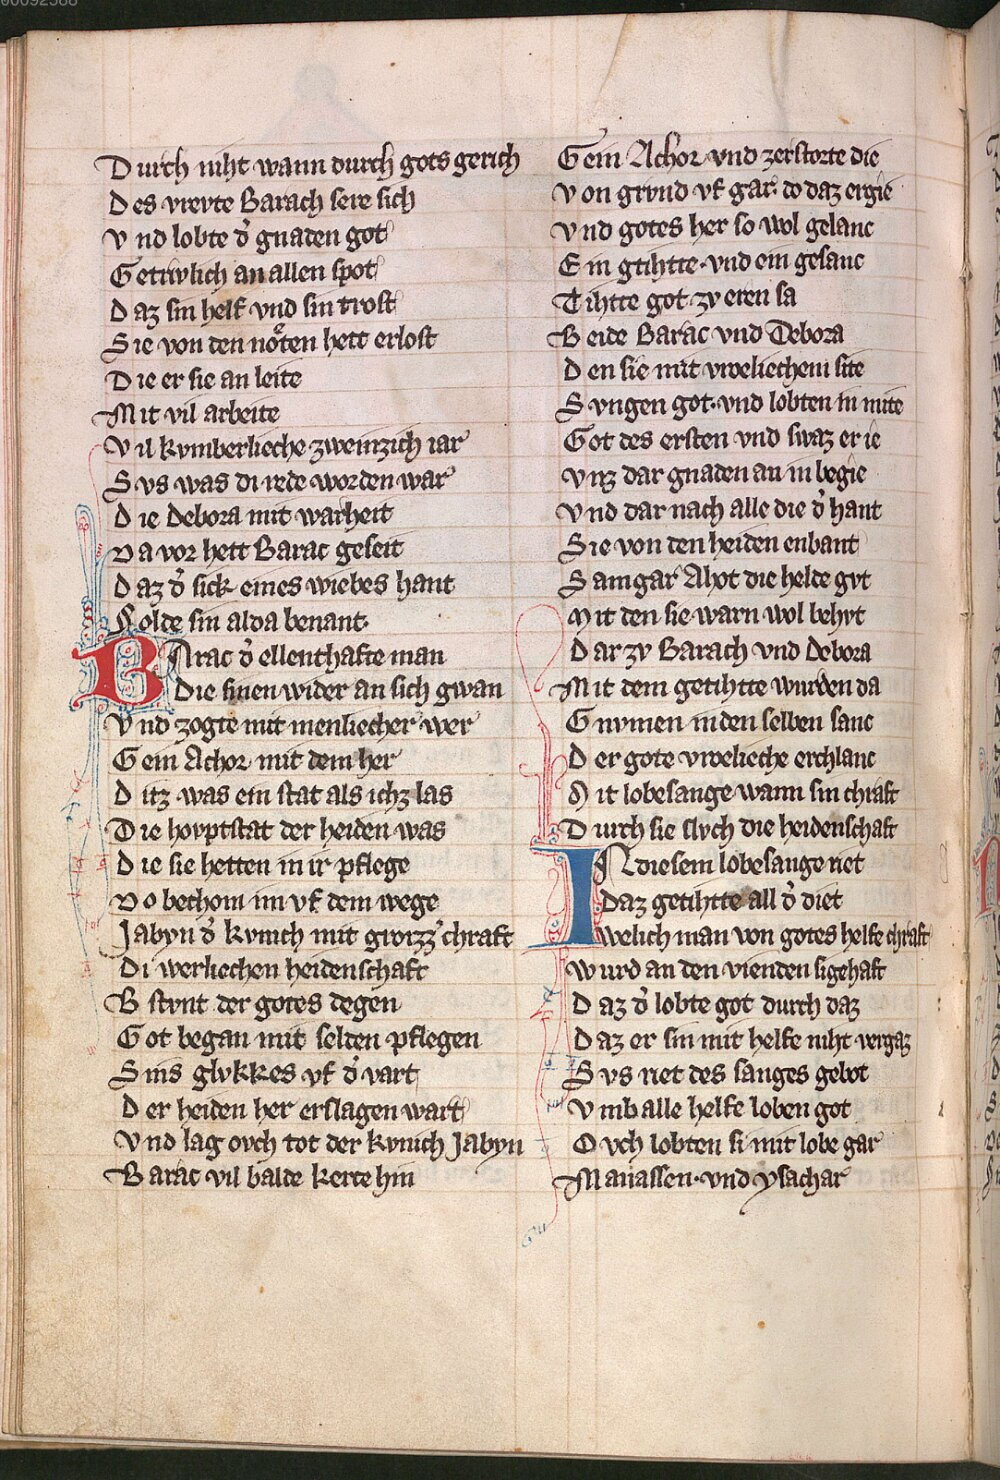 00092588
Durch niht wann durch gots gerich
Des vrevte Barach sere sich
Vnd lobte d̕ gnaden got
Getrwlich an allen spot
Daz sin helf vnd sin trost
Sie von den nöten hett erlost
Die er sie an leite
Mit vil arbeite
Vil kvmberlieche zweinzich iar
Svs was di rede worden war
Die Debora mit warheit
Da vor hett Barac geseit
Daz d̕ sick eines wiebes hant
Solde sin alda benant
BArac d̕ ellenthafte man
Die sinen wider an sich gwan
Vnd zogte mit menliecher wer
Gein Achor mit dem her
Ditz was ein stat als ichz las
Die hovptstat der heiden was
Die sie hetten in ir pflege
Do bechom im vf dem wege
Jabyn d̕ kvnich mit grozz̕ chraft
Di werliechen heidenschaft
Bstvnt der gotes degen
Got began mit selden pflegen
Sins glvkkes vf d̕ vart
Der heiden her erslagen wart
Vnd lag ovch tot der kvnich Jabyn
Barac vil balde kerte hin
Gein Achor vnd zerstorte die
Von grvnd vf gar· do daz ergie
Vnd gotes her so wol gelanc
Ein gtihtte· vnd ein gesanc
Tihtte got· zv eren sa
Beide Barac vnd Debora
Den sie mit vroeliechem site
Svngen got· vnd lobten in mite
Got des ersten vnd swaz er ie
Vnz dar gnaden an in begie
Vnd dar nach alle die d̕ hant
Sie von den heiden enbant
Samgar Ahot die helde gvt
Mit den sie warn wol behvt
Dar zv Barach vnd Debora
Mit dem getihtte wurden da
Gnvmen in den selben sanc
Der gote vroelieche erchlanc
Mit lobesange wann sin chraft
Durch sie slvch die heidenschaft
IN diesem lobesange riet
Daz getihtte all d̕ diet
Swelich man von gotes helfe chraft
Wurd an den vienden sigehaft
Daz d̕ lobte got durch daz
Daz er sin mit helfe niht vergaz
Svs riet des sanges gebot
Vmb alle helfe loben got
Ovch lobten si mit lobe gar
Manassen· vnd ysachar